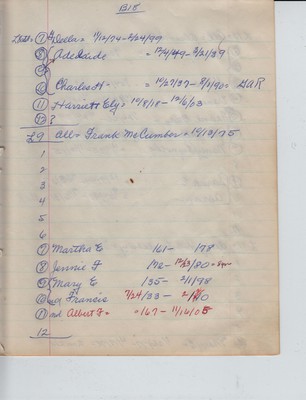 B18
⑦ Della = 9/12/74 - 2/24/99
⑧ Adelaide = 12/4/49 - 2/21/39
⑨
Charles H = 10/27/37 - 8/1/90 = GAR
⑪ Harriett Ely = 10/8/18 - 12/6/03
⑫ ?
L9 all = Frank McCumber = 10/10/75
1
2
3
4
5
6
⑦ Martha E 161 - 178
⑧ Jennie F
⑨ Mary E 135 - 2/1/98
Francis 7/24/33
⑪ Albert F = 0/67 - 11/16/05
12